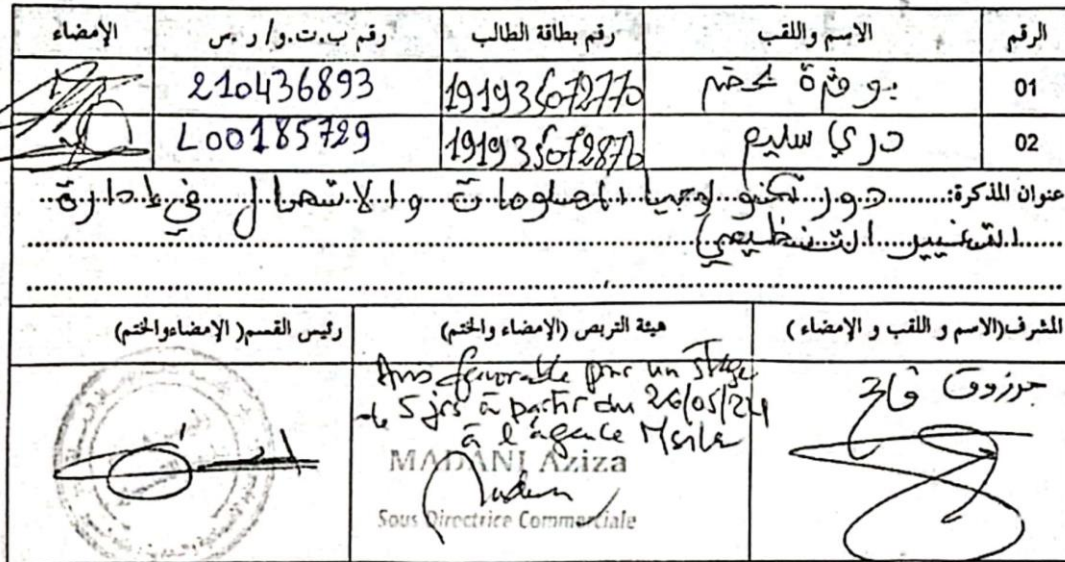 الرقم الاسم واللقب رقم بطاقة الطالب رقم ب.ت.و/ ر.س الإمضاء
01 بوقرة لخضر 191935072770 210436893
02 دري سليم 191935072870 L00185729
عنوان المذكرة: دور تكنولوجيا المعلومات والاتصال في إدارة
التغيير التنظيمي
المشرف(الاسم و اللقب و الإمضاء ) هيئة التربص (الإمضاء والختم) رئيس القسم( الإمضاءوالختم)
Avis favorable pour un stage
de 5 jrs à partir du 26/05/24
à l'agence
MADANI Aziza
Sous Directrice Commerciale